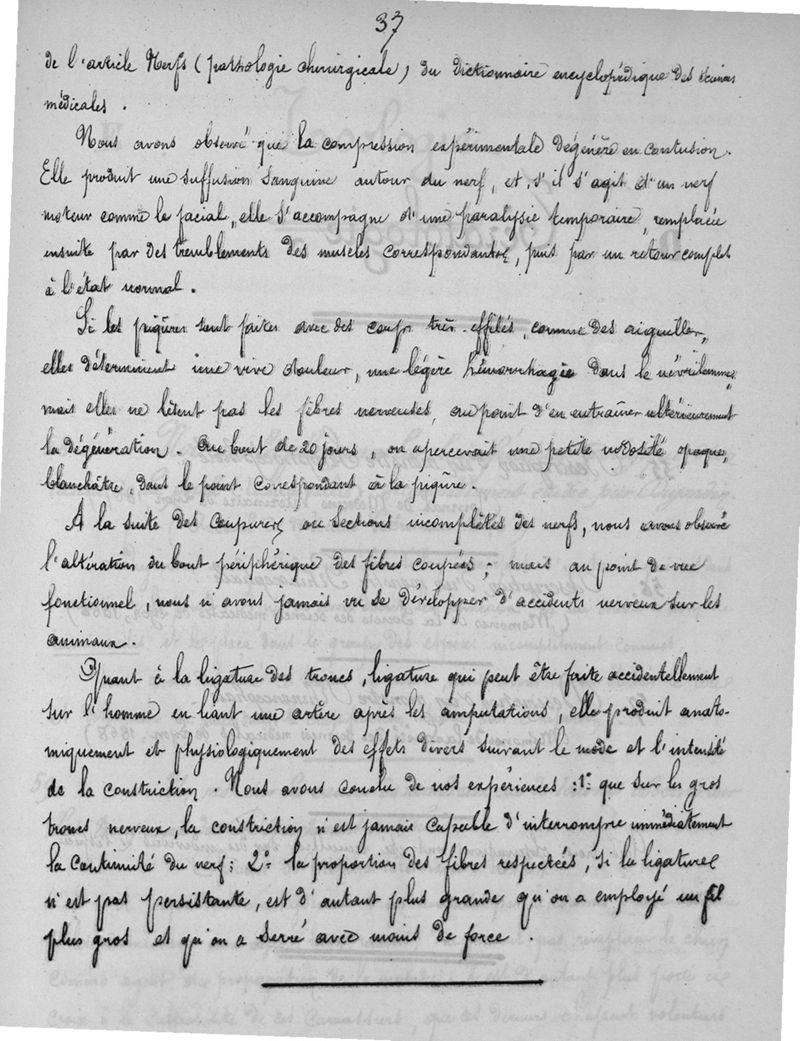 37
de l'article Nerfs (pathologie chirurgicale) du dictionnaire encyclopédique des sciences
médicales.
Nous avons observé que la compression expérimentale dégénère en contusion.
Elle produit une suffusion sanguine autour du nerf, et s'il s'agit d'un nerf
moteur comme le facial, elle s'accompagne d'une paralysie temporaire, remplacée
ensuite par des tremblements des muscles correspondants, puis par un retour complet
à l'état normal.
Si les piqûres sont faites avec des corps très-effilés, comme des aiguilles,
elles déterminent une vive douleur, une légère hémorrhagie dans le névrilemme,
mais elles ne lèsent pas les fibres nerveuses, au point d'en entraîner ultérieurement
la dégénération. Au bout de 20 jours, on apercevait une petite nodosité opaque,
blanchâtre, dans le point correspondant à la piqûre.
À la suite des coupures ou sections incomplètes des nerfs, nous avons observé
l'altération du bout périphérique des fibres coupées; mais au point de vue
fonctionnel, nous n'avons jamais vu se développer d'accidents nerveux sur les
animaux.
Quant à la ligature des troncs, ligature qui peut être faite accidentellement
sur l'homme en liant une artère après les amputations, elle produit anato-
miquement et physiologiquement des effets divers suivant le mode et l'intensité
de la constriction. Nous avons conclu de nos expériences : 1º que sur les gros
troncs nerveux, la constriction n'est jamais capable d'interrompre immédiatement
la continuité du nerf; 2º la proportion des fibres respectées, si la ligature
n'est pas persistante, est d'autant plus grande qu'on a employé un fil
plus gros et qu'on a serré avec moins de force.